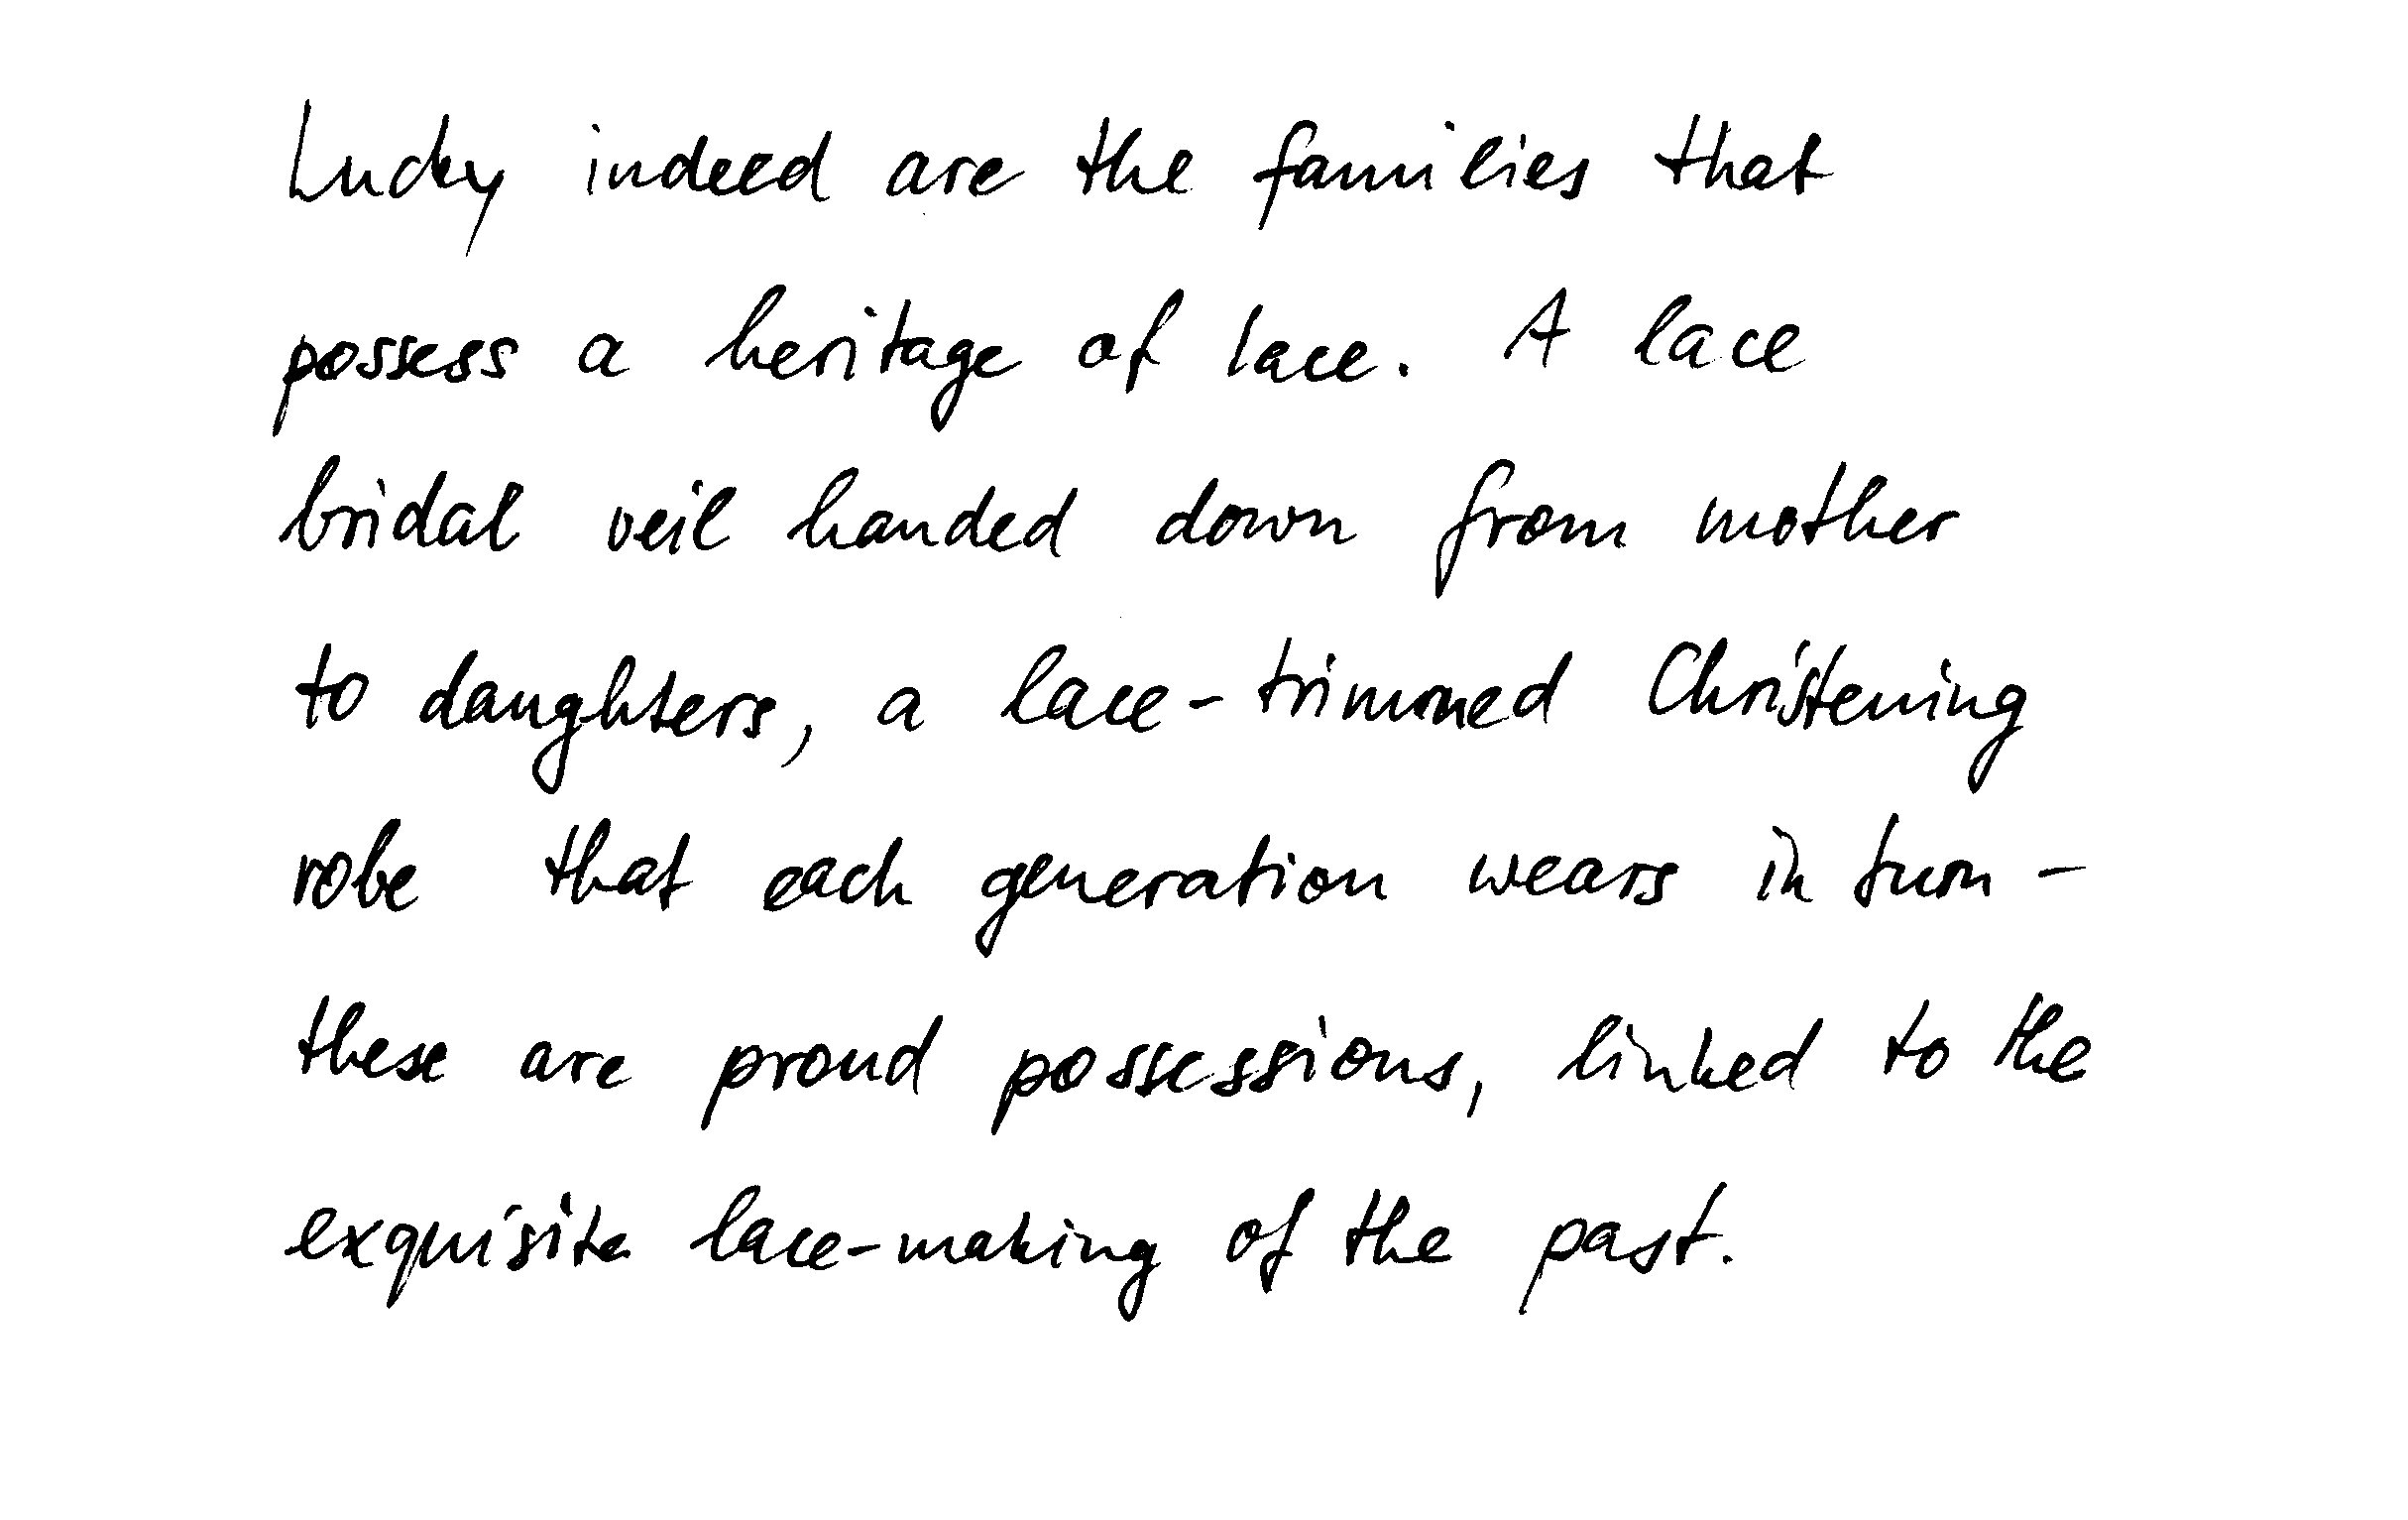 Lucky indeed are the families that
possess a heritage of lace. A lace
bridal veil handed down from mother
to daughters, a lace-trimmed Christening
robe that each generation wears in turn -
these are proud possessions, linked to the
exquisite lace-making of the past.